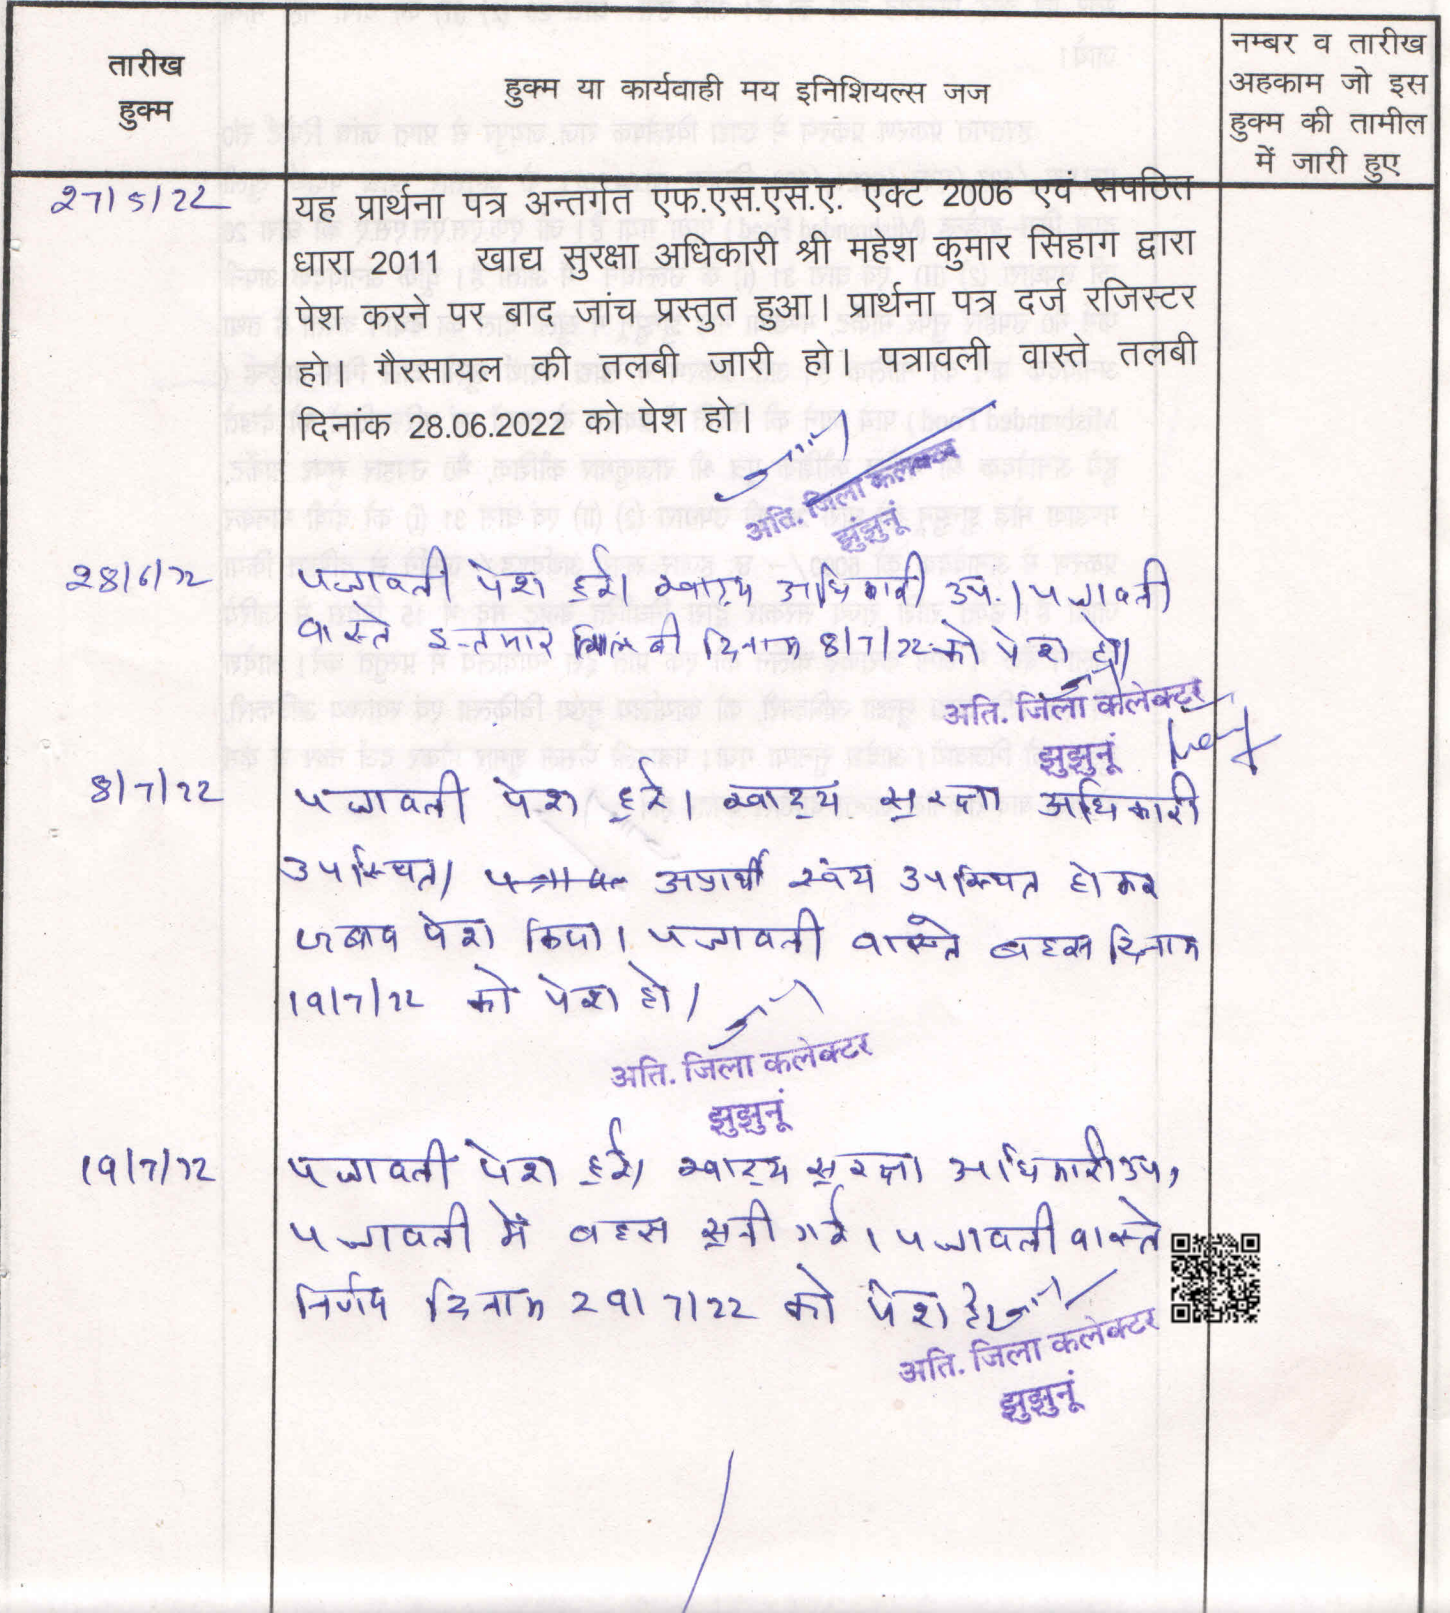 तारीख
हुक्म
हुक्म या कार्यवाही मय इनिशियल्स जज
नम्बर व तारीख
अहकाम जो इस
हुक्म की तामील
में जारी हुए
27/5/22
यह प्रार्थना पत्र अन्तर्गत एफ.एस.एस.ए. एक्ट 2006 एवं सपठित
धारा 2011 खाद्य सुरक्षा अधिकारी श्री महेश कुमार सिहाग द्वारा
पेश करने पर बाद जांच प्रस्तुत हुआ। प्रार्थना पत्र दर्ज रजिस्टर
हो। गैरसायल की तलबी जारी हो। पत्रावली वास्ते तलबी
दिनांक 28.06.2022 को पेश हो।
अति. जिला कलेक्टर
झुझुनूं
28/6/22
पत्रावली पेश हुई। खाद्य अधिकारी उप.। पत्रावली
वास्ते इन्तजार दिनांक 8/7/22 को पेश हो।
अति. जिला कलेक्टर
झुझुनूं
8/7/22
पत्रावली पेश हुई। खाद्य सुरक्षा अधिकारी
उपस्थित। अप्रार्थी स्वंय उपस्थित होकर
जवाब पेश किया। पत्रावली वास्ते बहस दिनांक
19/7/22 को पेश हो।
अति. जिला कलेक्टर
झुझुनूं
19/7/22
पत्रावली पेश हुई। खाद्य सुरक्षा अधिकारी उप,
पत्रावली में बहस सुनी गई। पत्रावली वास्ते
निर्णय दिनांक 29/7/22 को पेश हो।
अति. जिला कलेक्टर
झुझुनूं